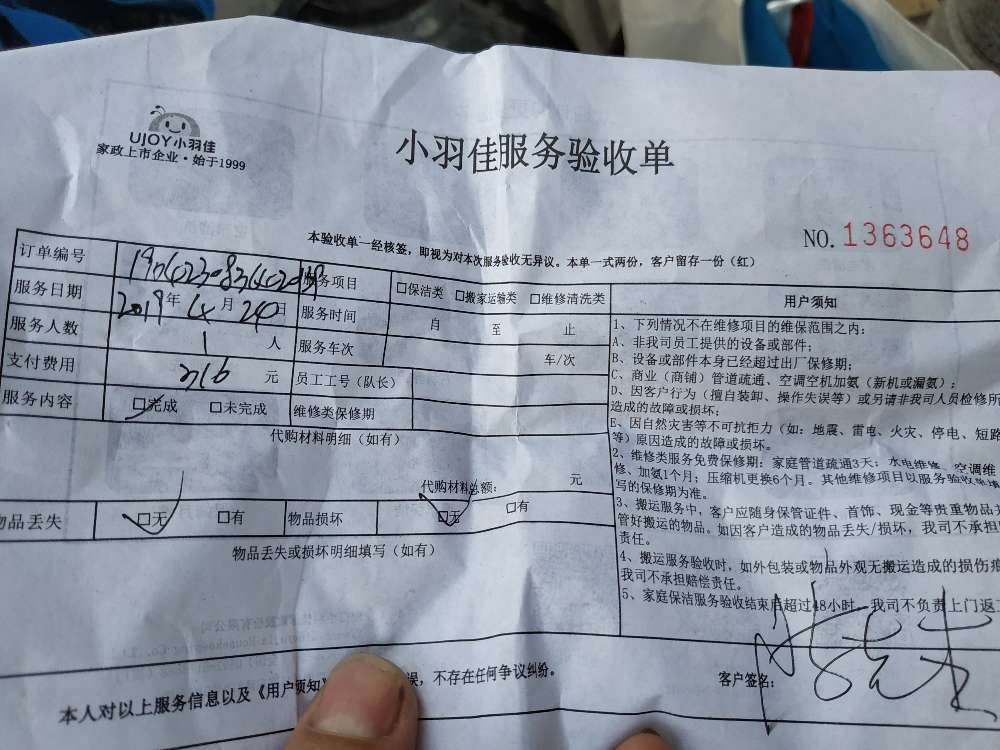 UJOY小羽佳
家政上市企业·始于1999
小羽佳服务验收单
NO.1363648
本验收单一经核签，即视为对本次服务验收无异议。本单一式两份，客户留存一份（红）
订单编号
服务项目 □保洁类 □搬家运输类 □维修清洗类
用户须知
服务日期 2019年4月24日
服务时间 自 至 止
服务人数 1人
服务车次 车/次
支付费用 316元
员工工号（队长）
服务内容 □完成 □未完成
维修类保修期
代购材料明细（如有）
代购材料总额： 元
物品丢失 □无 □有 物品损坏 □无 □有
物品丢失或损坏明细填写（如有）
1、下列情况不在维修项目的维保范围之内：
A、非我司员工提供的设备或部件；
B、设备或部件本身已经超过出厂保修期；
C、商业（商铺）管道疏通、空调空机加氨（新机或漏氨）；
D、因客户行为（擅自装卸、操作失误等）或另请非我司人员检修所
造成的故障或损坏；
E、因自然灾害等不可抗拒力（如：地震、雷电、火灾、停电、短路
等）原因造成的故障或损坏。
2、维修类服务免费保修期：家庭管道疏通3天；水电维修、空调维
修、加氨1个月；压缩机更换6个月。其他维修项目以服务验收单填
写的保修期为准。
3、搬运服务中，客户应随身保管证件、首饰、现金等贵重物品并
管好搬运的物品。如因客户造成的物品丢失/损坏，我司不承担
责任。
4、搬运服务验收时，如外包装或物品外观无搬运造成的损伤痕
我司不承担赔偿责任。
5、家庭保洁服务验收结束后超过48小时，我司不负责上门返工
本人对以上服务信息以及《用户须知》 误，不存在任何争议纠纷。
客户签名：